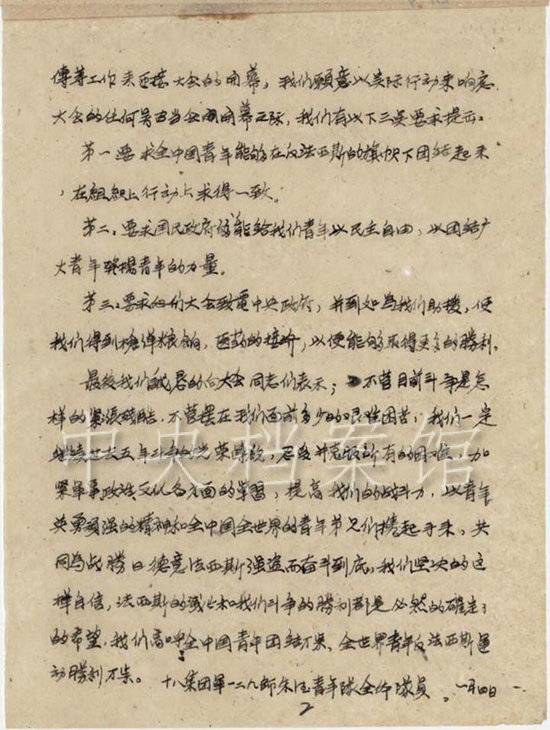 傳等工作来迎接大会的闭幕，我们願意以实际行动来响应
大会的任何号召当会闭幕之际，我们有以下三点要求提示：
第一要求全中国青年能够在反法西斯的旗帜下团结起来
，在组织上行动上求得一致。
第二：要求国民政府能给我们青年以民主自由，以团结广
大青年發揚青年的力量。
第三：要求我们大会致電中央政府，并到如为我们助援，使
我们得到枪弹粮饷，医药的接济，以便能够取得更多的勝利。
最後我们的向大会同志们表示；不管目前斗争是怎
样的緊張残酷，不管摆在我们面前多少的艰难困苦，我们一定
继续过去五年斗争的光荣傳統，忍受并克服所有的困难，加
緊軍事政治文化各方面的学習，提高我们的战斗力，以青年
英勇頑强的精神和全中国全世界的青年弟兄们携起手来，共
同为战勝日德意法西斯强盗而奋斗到底，我们坚决的这
样自信，法西斯的滅亡和我们斗争的勝利都是必然的確定了
的希望，我们高呼全中国青年团结万岁。全世界青年反法西斯运
动勝利万岁。十八集团軍一二九师青年隊全体隊員 一月四日
2
中央档案馆